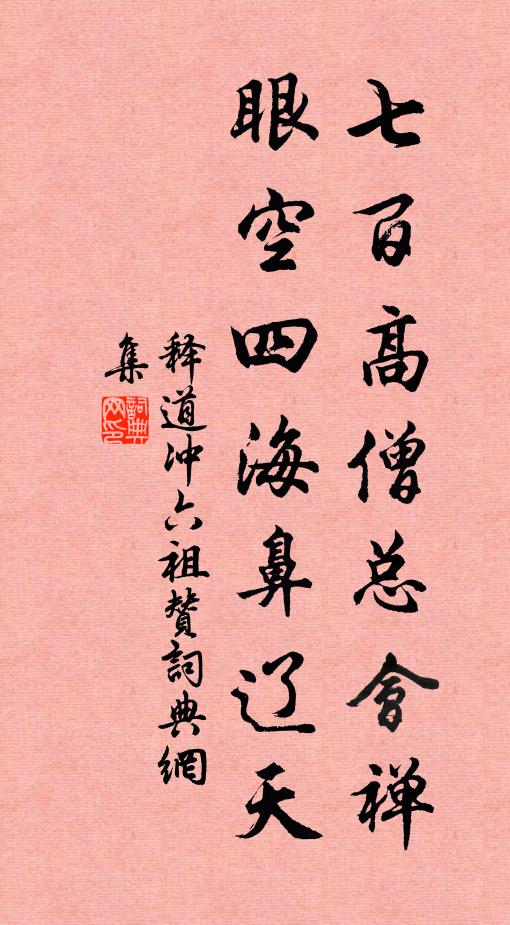 七百高僧总會禅
眼空四海鼻辽天
释道冲六祖赞詞典網
集
詞典
网印